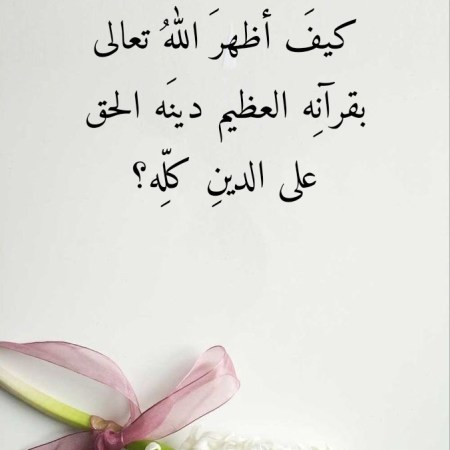 كيفَ أظهرَ اللهُ تعالى
بقرآنِه العظيم دينَه الحق
على الدينِ كلِّه؟